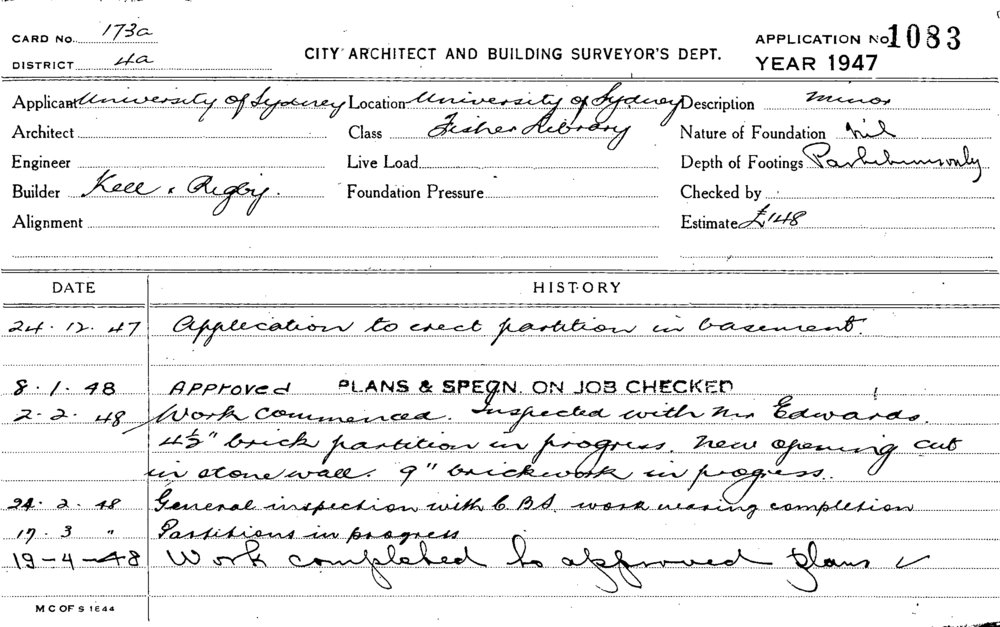 CARD No. 173a
DISTRICT 4a
CITY ARCHITECT AND BUILDING SURVEYOR'S DEPT.
APPLICATION No 1083
YEAR 1947
Applicant University of Sydney Location University of Sydney Description Minor
Architect Class Fisher Library Nature of Foundation Nil
Engineer Live Load Depth of Footings Partitions only
Builder Kell & Rigby. Foundation Pressure Checked by
Alignment Estimate £148
DATE HISTORY
24.12.47 Application to erect partition in basement.
8.1.48 APPROVED PLANS & SPECN. ON JOB CHECKED
2.2.48 Work commenced. Inspected with Mr Edwards.
4½" brick partition in progress. New opening cut
in stone wall. 9" brickwork in progress.
24.2.48 General inspection with C.B.S. work nearing completion
17.3 " Partitions in progress
19-4-48 Work completed to approved plans ✓
M C OF S 1644